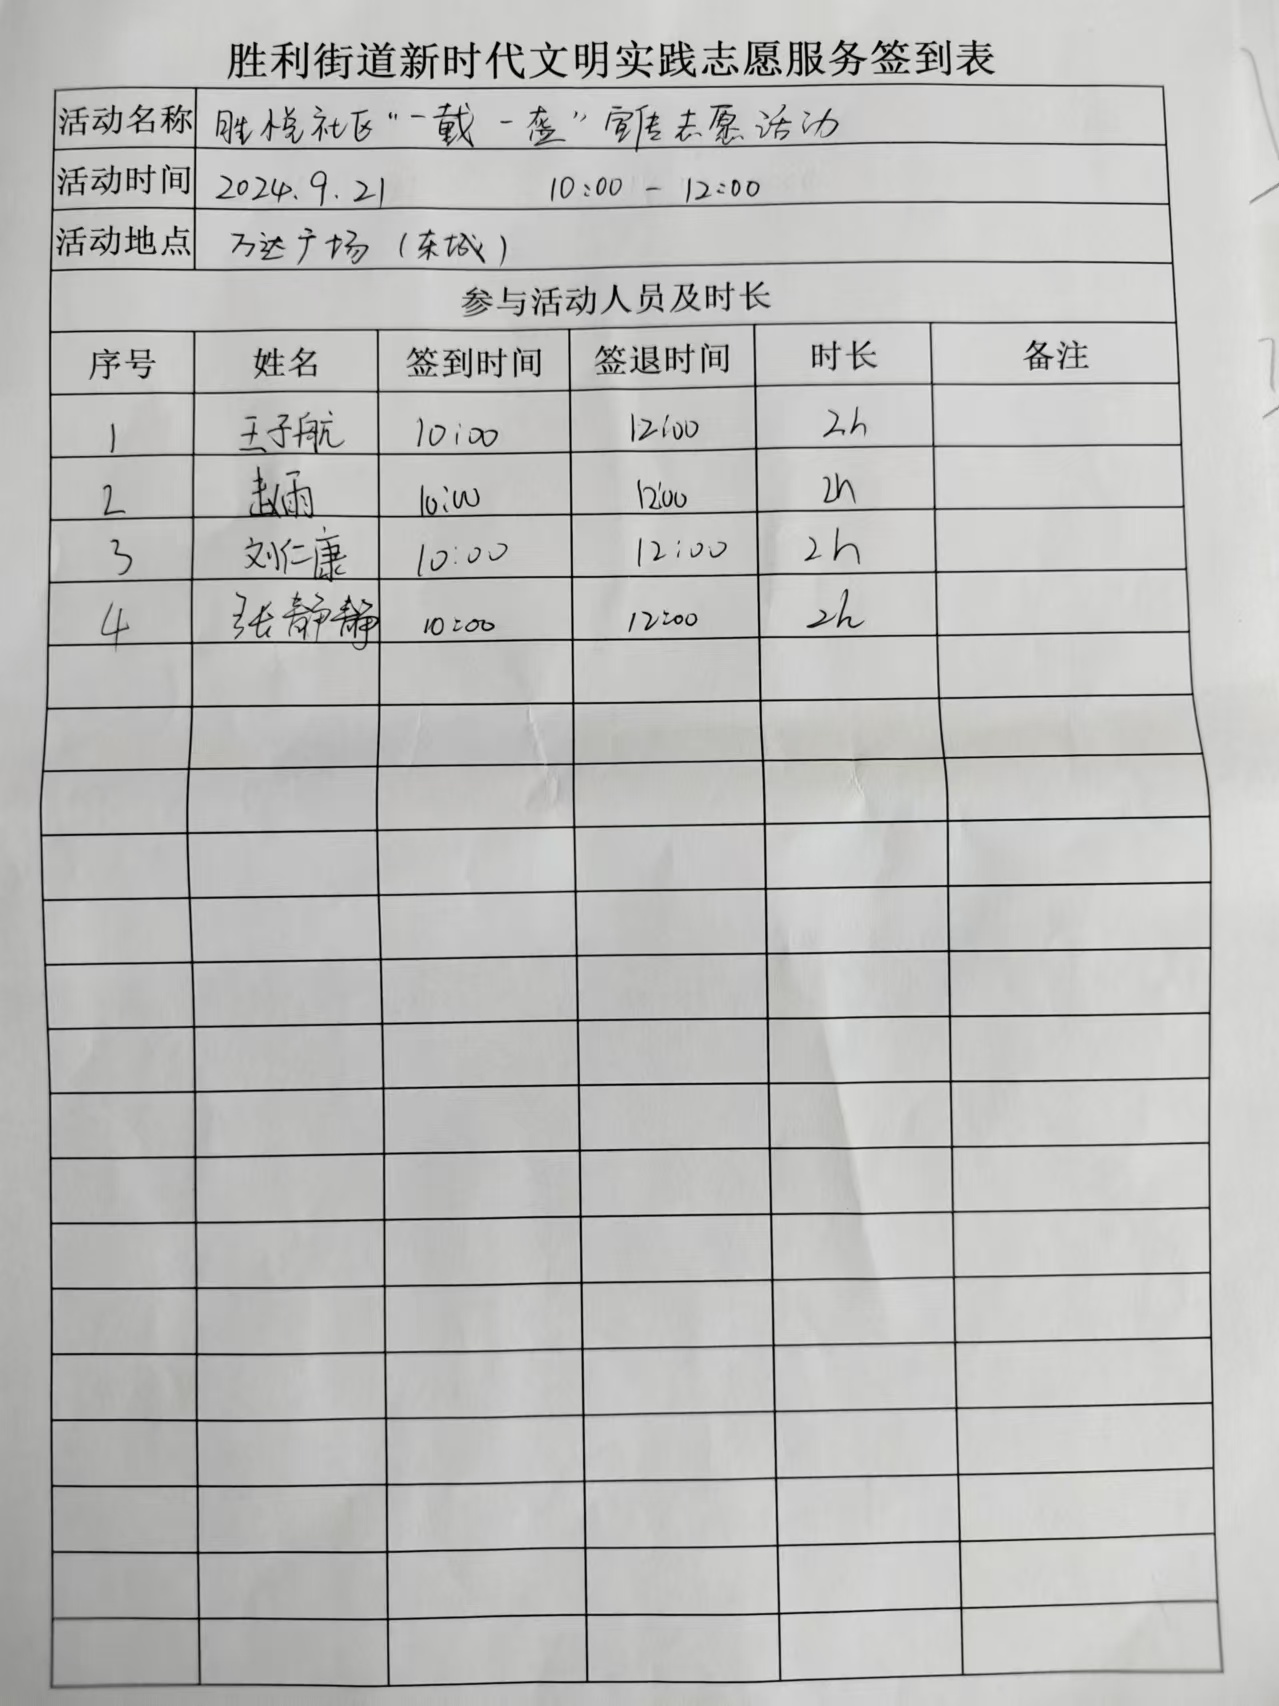 胜利街道新时代文明实践志愿服务签到表
活动名称 胜悦社区“一戴一盔”宣传志愿活动
活动时间 2024.9.21 10:00 - 12:00
活动地点 万达广场（东城）
参与活动人员及时长
序号 姓名 签到时间 签退时间 时长 备注
1 王子航 10:00 12:00 2h
2 赵雨 10:00 12:00 2h
3 刘仁康 10:00 12:00 2h
4 张静静 10:00 12:00 2h